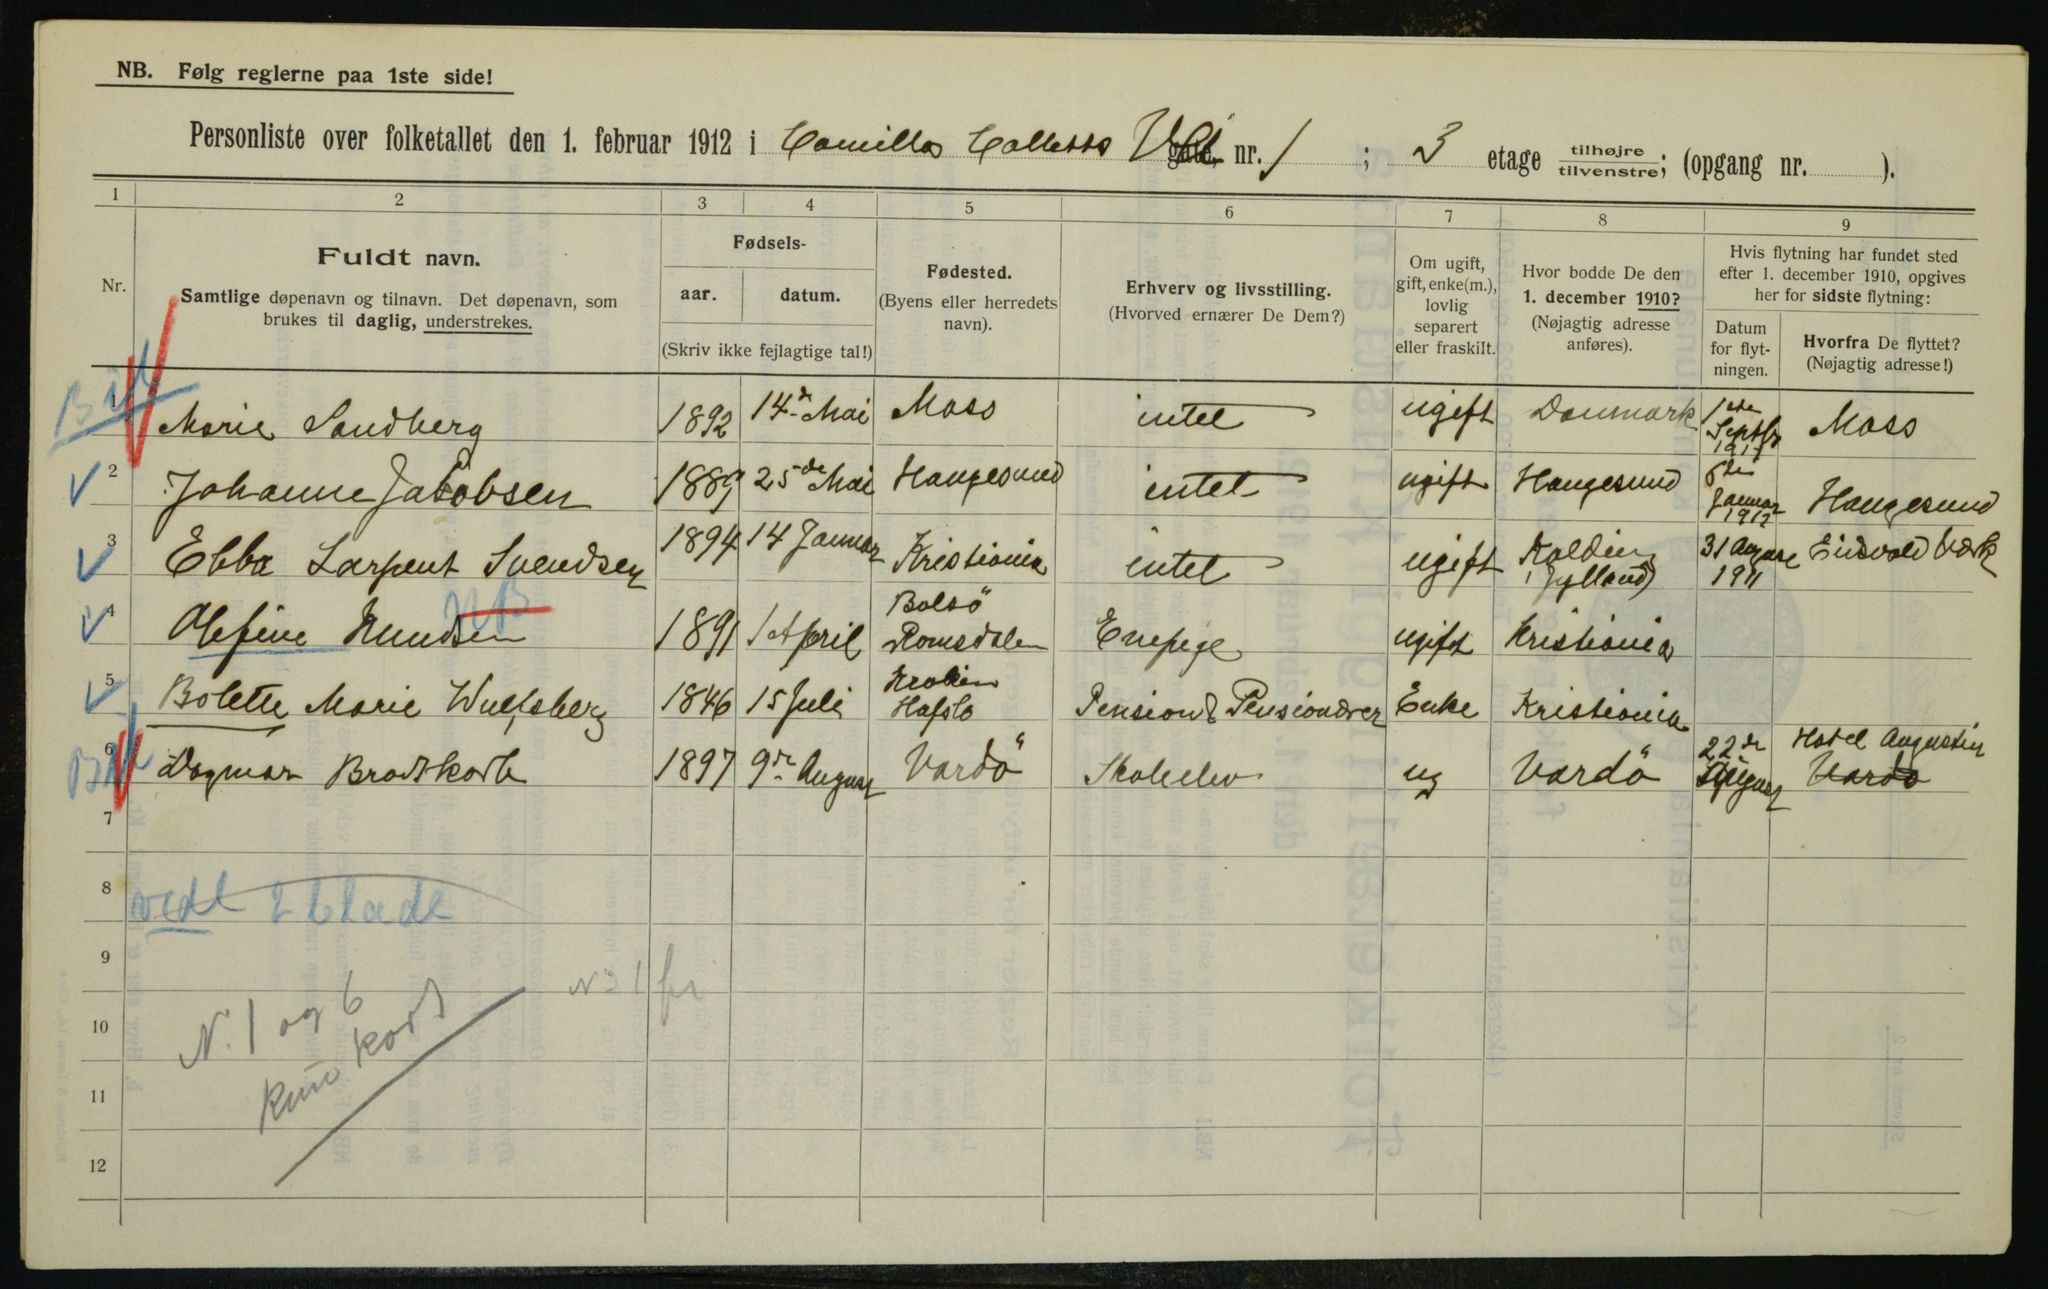 NB. Følg reglerne paa 1ste side!
Personliste over folketallet den 1. februar 1912 i Camilla Colletts Vei gate, nr. 1 ; 3 etage tilhøjre tilvenstre; (opgang nr. ).
1 2 3 4 5 6 7 8 9
Nr.
Fuldt navn.
Samtlige døpenavn og tilnavn. Det døpenavn, som
brukes til daglig, understrekes.
Fødsels-
aar. datum.
(Skriv ikke fejlagtige tal!)
Fødested.
(Byens eller herredets
navn).
Erhverv og livsstilling.
(Hvorved ernærer De Dem?)
Om ugift,
gift, enke(m.),
lovlig
separert
eller fraskilt.
Hvor bodde De den
1. december 1910?
(Nøjagtig adresse
anføres).
Hvis flytning har fundet sted
efter 1. december 1910, opgives
her for sidste flytning:
Datum
for flyt-
ningen.
Hvorfra De flyttet?
(Nøjagtig adresse!)
1 Marie Sandberg 1892 14de Mai Moss intet ugift Danmark 1ste Septbr 1911 Moss
2 Johanne Jakobsen 1889 25de Mai Haugesund intet ugift Haugesund 6te Januar 1912 Haugesund
3 Ebba Larpent Svendsen 1894 14 Januar Kristiania intet ugift Kolding (Jylland) 31 August 1911 Eidsvold Værk
NB
4 Olefine Knudsen 1891 1 April Bolsö Romsdalen Enepige ugift Kristiania
5 Bolette Marie Wulfsberg 1846 15 Juli Hafslo Pension & Pensionærer Enke Kristiania
6 Dagmar Brodtkorb 1897 9de August Vardö Skoleelev ug Vardö 22de August Hotel Augustin Vardö
7
8
vedl 2 blade
9
N: 1 fr
N. 1 og 6
10
kun kort
11
12